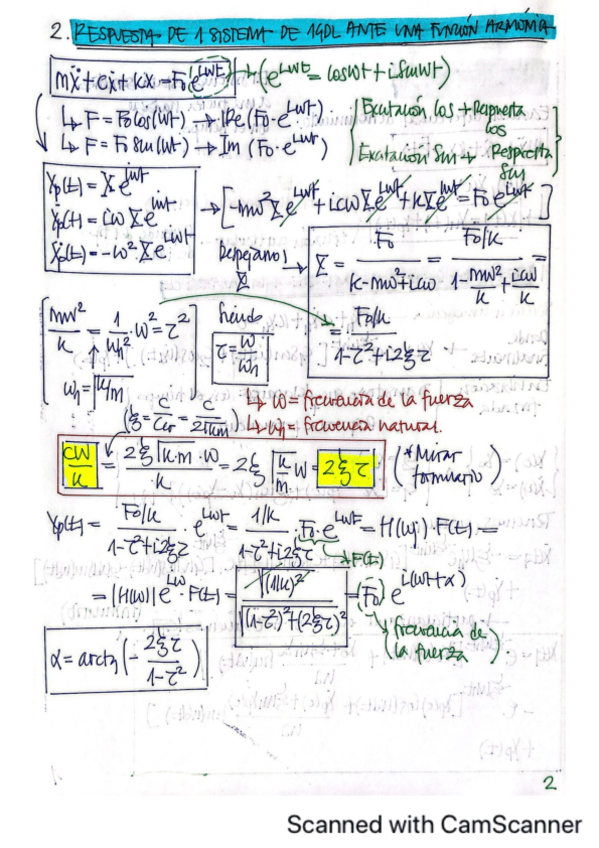 2. RESPUESTA DE 1 SISTEMA DE 1GDL ANTE UNA FUNCIÓN ARMÓNICA
mẍ + cẋ + kx = F₀ e^{iωt} → (e^{iωt} = cosωt + i sinωt)
↳ F = F₀ cos(ωt) → Re (F₀ · e^{iωt})
Excitación cos → Respuesta cos
↳ F = F₀ sin(ωt) → Im (F₀ · e^{iωt})
Excitación sin → Respuesta sin
Xp(t) = X e^{iωt}
Ẋp(t) = iω X e^{iωt}
Ẍp(t) = -ω² · X e^{iωt}
→ [-mω² X e^{iωt} + icω X e^{iωt} + k X e^{iωt} = F₀ e^{iωt}]
Despejamos X →
X = F₀ / (k - mω² + icω) = (F₀/k) / (1 - mω²/k + icω/k) =
= (F₀/k) / (1 - τ² + i2ξτ)
mω²/k = 1/ωn² · ω² = τ²
ωn = √k/m
Siendo
τ = ω/ωn
↳ ω = frecuencia de la fuerza
↳ ωn = frecuencia natural.
(ξ = c/Ccr = c/2√km)
cω/k = 2ξ√k·m · ω / k = 2ξ √k/m ω = 2ξτ
(*Mirar formulario)
Xp(t) = (F₀/k) / (1 - τ² + i2ξτ) · e^{iωt} = (1/k) / (1 - τ² + i2ξτ) · F₀ · e^{iωt} = H(ω) · F(t) =
→ F(t)
= |H(ω)| e^{iα} · F(t) = √(1/k)² / √(1-τ²)² + (2ξτ)² = F₀ e^{i(ωt+α)}
→ (frecuencia de la fuerza)
α = arctg (- 2ξτ / (1-τ²))
2
Scanned with CamScanner